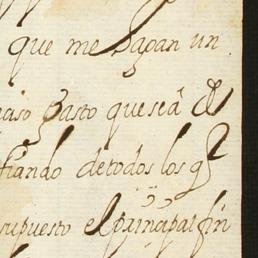 que me hagan un
caso gasto que seâ de
fiando de todos los q
supuesto el prinçipal fin